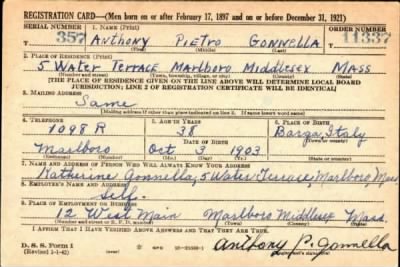 REGISTRATION CARD—(Men born on or after February 17, 1897 and on or before December 31, 1921)
SERIAL NUMBER 1. NAME (Print) ORDER NUMBER
357 Anthony Pietro Gonnella 11337
(First) (Middle) (Last)
2. PLACE OF RESIDENCE (Print)
5 Water Terrace Marlboro Middlesex Mass
(Number and street) (Town, township, village, or city) (County) (State)
[THE PLACE OF RESIDENCE GIVEN ON THE LINE ABOVE WILL DETERMINE LOCAL BOARD
JURISDICTION; LINE 2 OF REGISTRATION CERTIFICATE WILL BE IDENTICAL]
3. MAILING ADDRESS
Same
[Mailing address if other than place indicated on line 2. If same insert word same]
4. TELEPHONE 5. AGE IN YEARS 6. PLACE OF BIRTH
1098 R 38 Barga
DATE OF BIRTH (Town or county)
Marlboro Oct 3 1903 Italy
(Exchange) (Number) (Mo.) (Day) (Yr.) (State or country)
7. NAME AND ADDRESS OF PERSON WHO WILL ALWAYS KNOW YOUR ADDRESS
Katherine Gonnella, 5 Water Terrace, Marlboro Mass
8. EMPLOYER'S NAME AND ADDRESS
Self.
9. PLACE OF EMPLOYMENT OR BUSINESS
12 West Main Marlboro Middlesex Mass.
(Number and street or R. F. D. number) (Town) (County) (State)
I AFFIRM THAT I HAVE VERIFIED ABOVE ANSWERS AND THAT THEY ARE TRUE.
D. S. S. Form 1
(Revised 1-1-42) (over) Anthony P. Gonnella
(Registrant's signature)